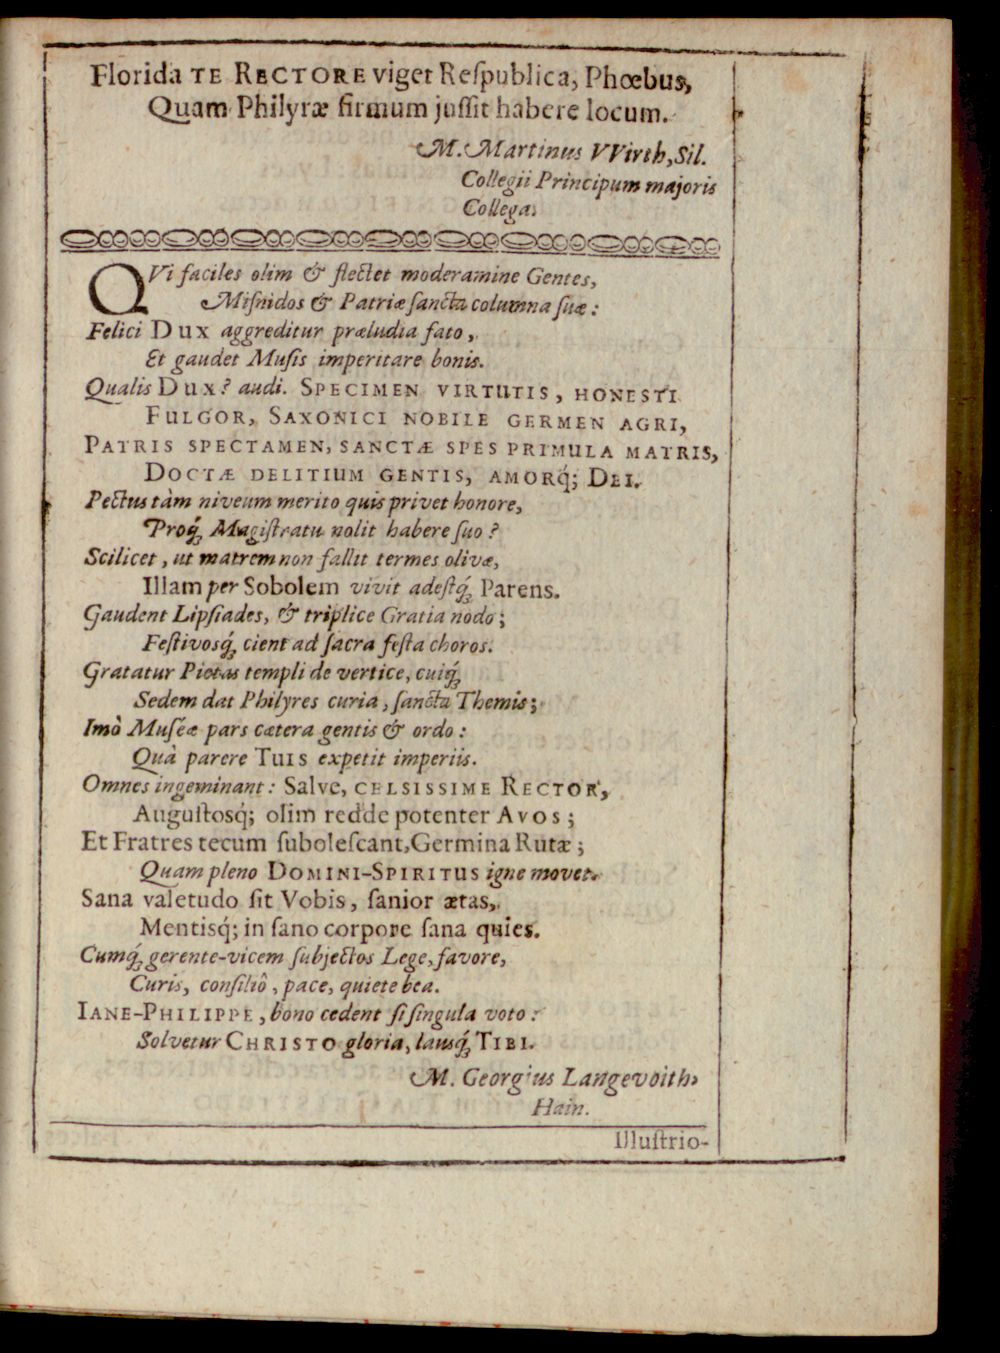 Florida TE RECTORE viget Reſpublica, Phœbus,
Quam Philyræ firmum juſſit habere locum.
M. Martinus VVirth, Sil.
Collegii Principum majoris
Collega.
QVi faciles olim & flectet moderamine Gentes,
Miſnidos & Patriæ ſancta columna ſuæ:
Felici DUX aggreditur præludia fato,
Et gaudet Muſis imperitare bonis.
Qualis DUX? audi. SPECIMEN VIRTUTIS, HONESTI
FULGOR, SAXONICI NOBILE GERMEN AGRI,
PATRIS SPECTAMEN, SANCTÆ SPES PRIMULA MATRIS,
DOCTÆ DELITIUM GENTIS, AMORq́; DEI.
Pectus tàm niveum merito quis privet honore,
Proq́; Magiſtratu nolit habere ſuo?
Scilicet, ut matrem non fallit termes olivæ,
Illam per Sobolem vivit adeſtq́; Parens.
Gaudent Lipſiades, & triplice Gratia nodo;
Feſtivosq́; cient ad ſacra feſta choros.
Gratatur Pietas templi de vertice, cuiq́;
Sedem dat Philyres curia, ſancta Themis;
Imò Muſéæ pars cætera gentis & ordo:
Quà parere TUIS expetit imperiis.
Omnes ingeminant: Salve, CELSISSIME RECTOR,
Auguſtosq́; olim redde potenter AVOS;
Et Fratres tecum ſuboleſcant, Germina Rutæ;
Quam pleno DOMINI-SPIRITUS igne movet.
Sana valetudo ſit Vobis, ſanior ætas,
Mentisq́; in ſano corpore ſana quies.
Cumq́; gerente-vicem ſubjectos Lege, favore,
Curis, conſiliô, pace, quiete bea.
IANE-PHILIPPE, bono cedent ſi ſingula voto:
Solvetur CHRISTO gloria, lausq́; TIBI.
M. Georgius Langevoith,
Hain.
Illuſtrio-